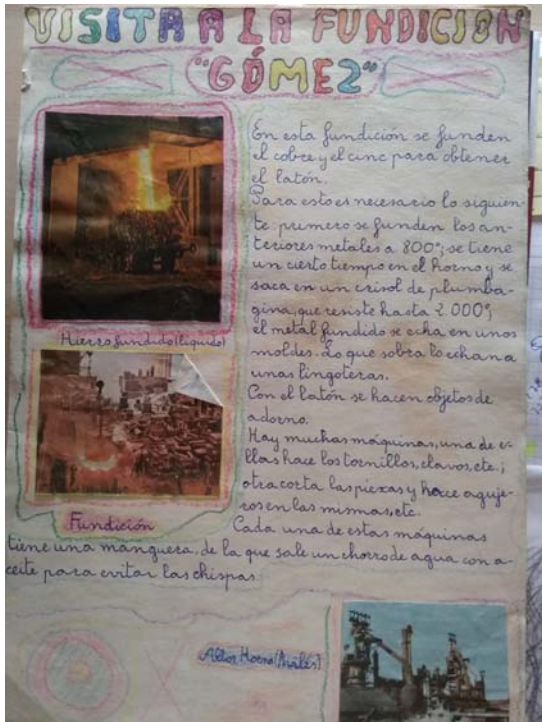 VISITA A LA FUNDICION
"GÓMEZ"
En esta fundición se funden
el cobre y el cinc para obtener
el latón.
Para esto es necesario lo siguien-
te: primero se funden los an-
teriores metales a 800º; se tiene
un cierto tiempo en el horno y se
saca en un crisol de plumba-
gina, que resiste hasta 2.000º;
el metal fundido se echa en unos
moldes. Lo que sobra lo echan a
unas lingoteras.
Con el latón se hacen objetos de
adorno.
Hay muchas máquinas, una de e-
llas hace los tornillos, clavos, etc.;
otra corta las piezas y hace aguje-
ros en las mismas, etc.
Cada una de estas máquinas
tiene una manguera, de la que sale un chorro de agua con a-
ceite para evitar las chispas.
Hierro fundido (líquido)
Fundición
Altos Hornos (Avilés)